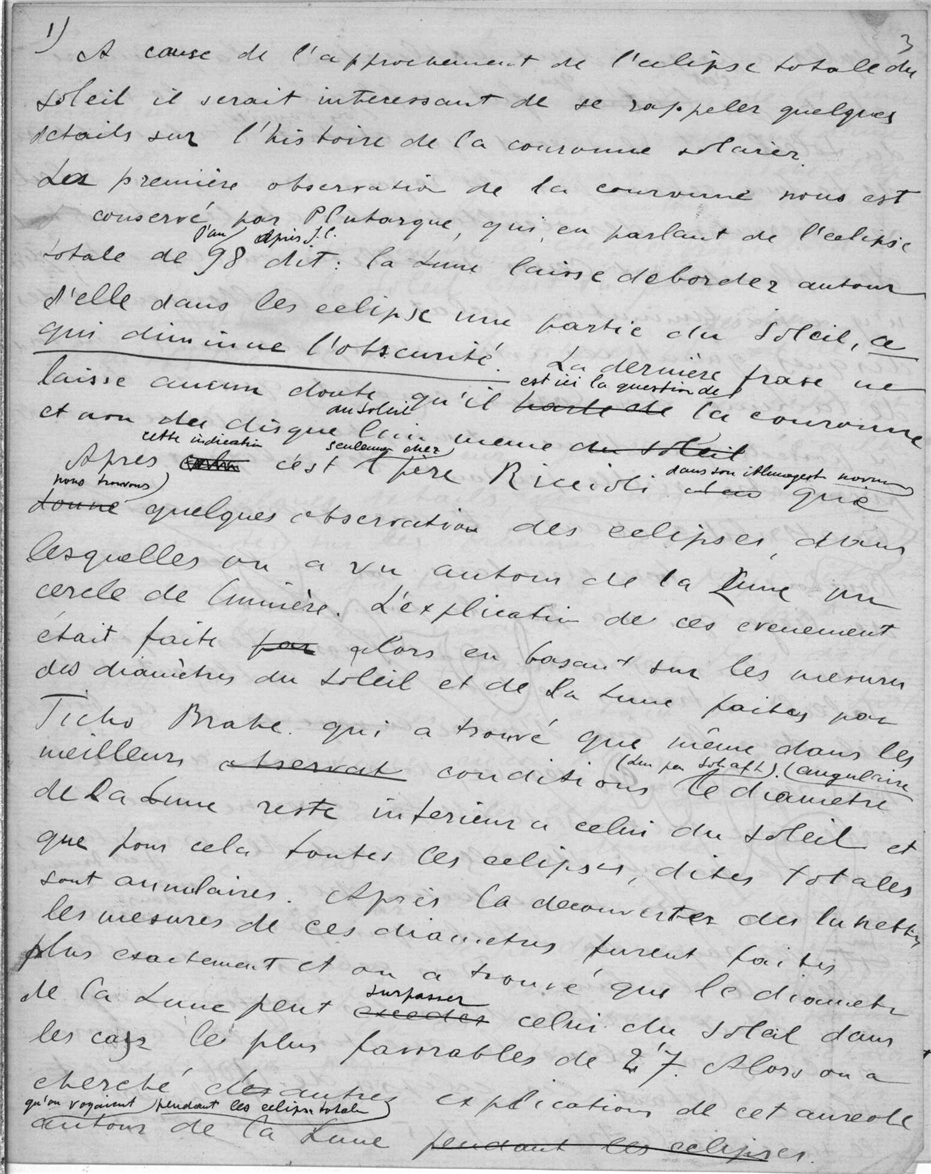 1) 3
A cause de l'approchement de l'eclipse totale du
soleil il serait interessant de se rappeler quelques
details sur l'histoire de la couronne solaire.
La première observation de la couronne nous est
conservé par Plutarque, qui, en parlant de l'eclipse
l'an après J.C.
totale de 98 dit: la Lune laisse deborder autour
d'elle dans les eclipse une partie du Soleil, ce
qui diminue l'obscurité. La dernière frase ne
est ici la question de
laisse aucun doute qu'il parle de la couronne
du soleil
et non du disque lui meme du soleil
cette indication seulement chez dans son Almagest novum
Après c'est père Riccioli que
nous trouvons
donne quelques observation des eclipses, dans
lesquelles on a vu autour de la Lune un
cercle de lumière. L'explication de ces evenement
était faite par alors en basant sur les mesures
des diamètres du soleil et de la Lune faites par
Ticho Brahe qui a trouvé que même dans les
angulaire
meilleurs observat conditions le diametre
de la Lune reste inferieur a celui du soleil et
que pour cela toutes les eclipses, dites totales
sont annulaires. Après la decouvertes des lunettes
les mesures de ces diametres furent faites
plus exactement et on a trouvé que le diametre
surpasser
de la Lune peut exceder celui du soleil dans
les cas les plus favorables de 2'7 Alors on a
cherché des autres explications de cet aureole
qu'on voyaient pendant les eclipse totale
autour de la Lune pendant les eclipses.